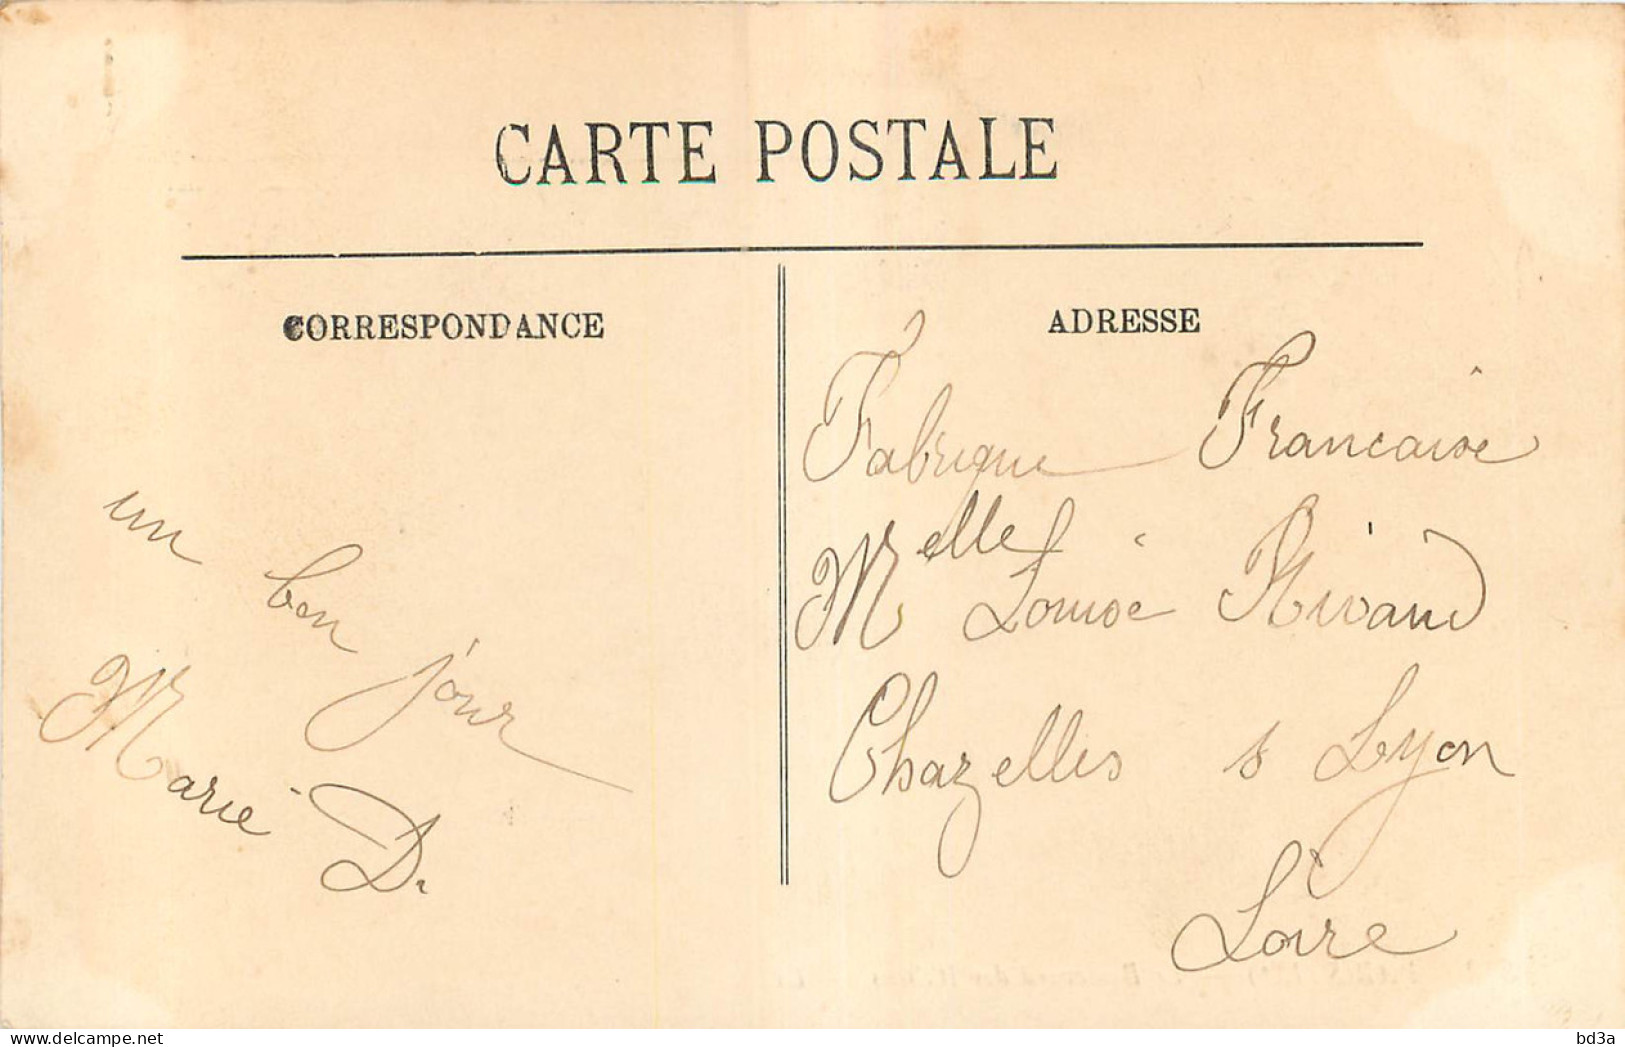 CARTE POSTALE
CORRESPONDANCE
un bon jour
Marie D.
ADRESSE
Fabrique Francaise
Melle Louise Rivaud
Chazelles s Lyon
Loire
bd3a